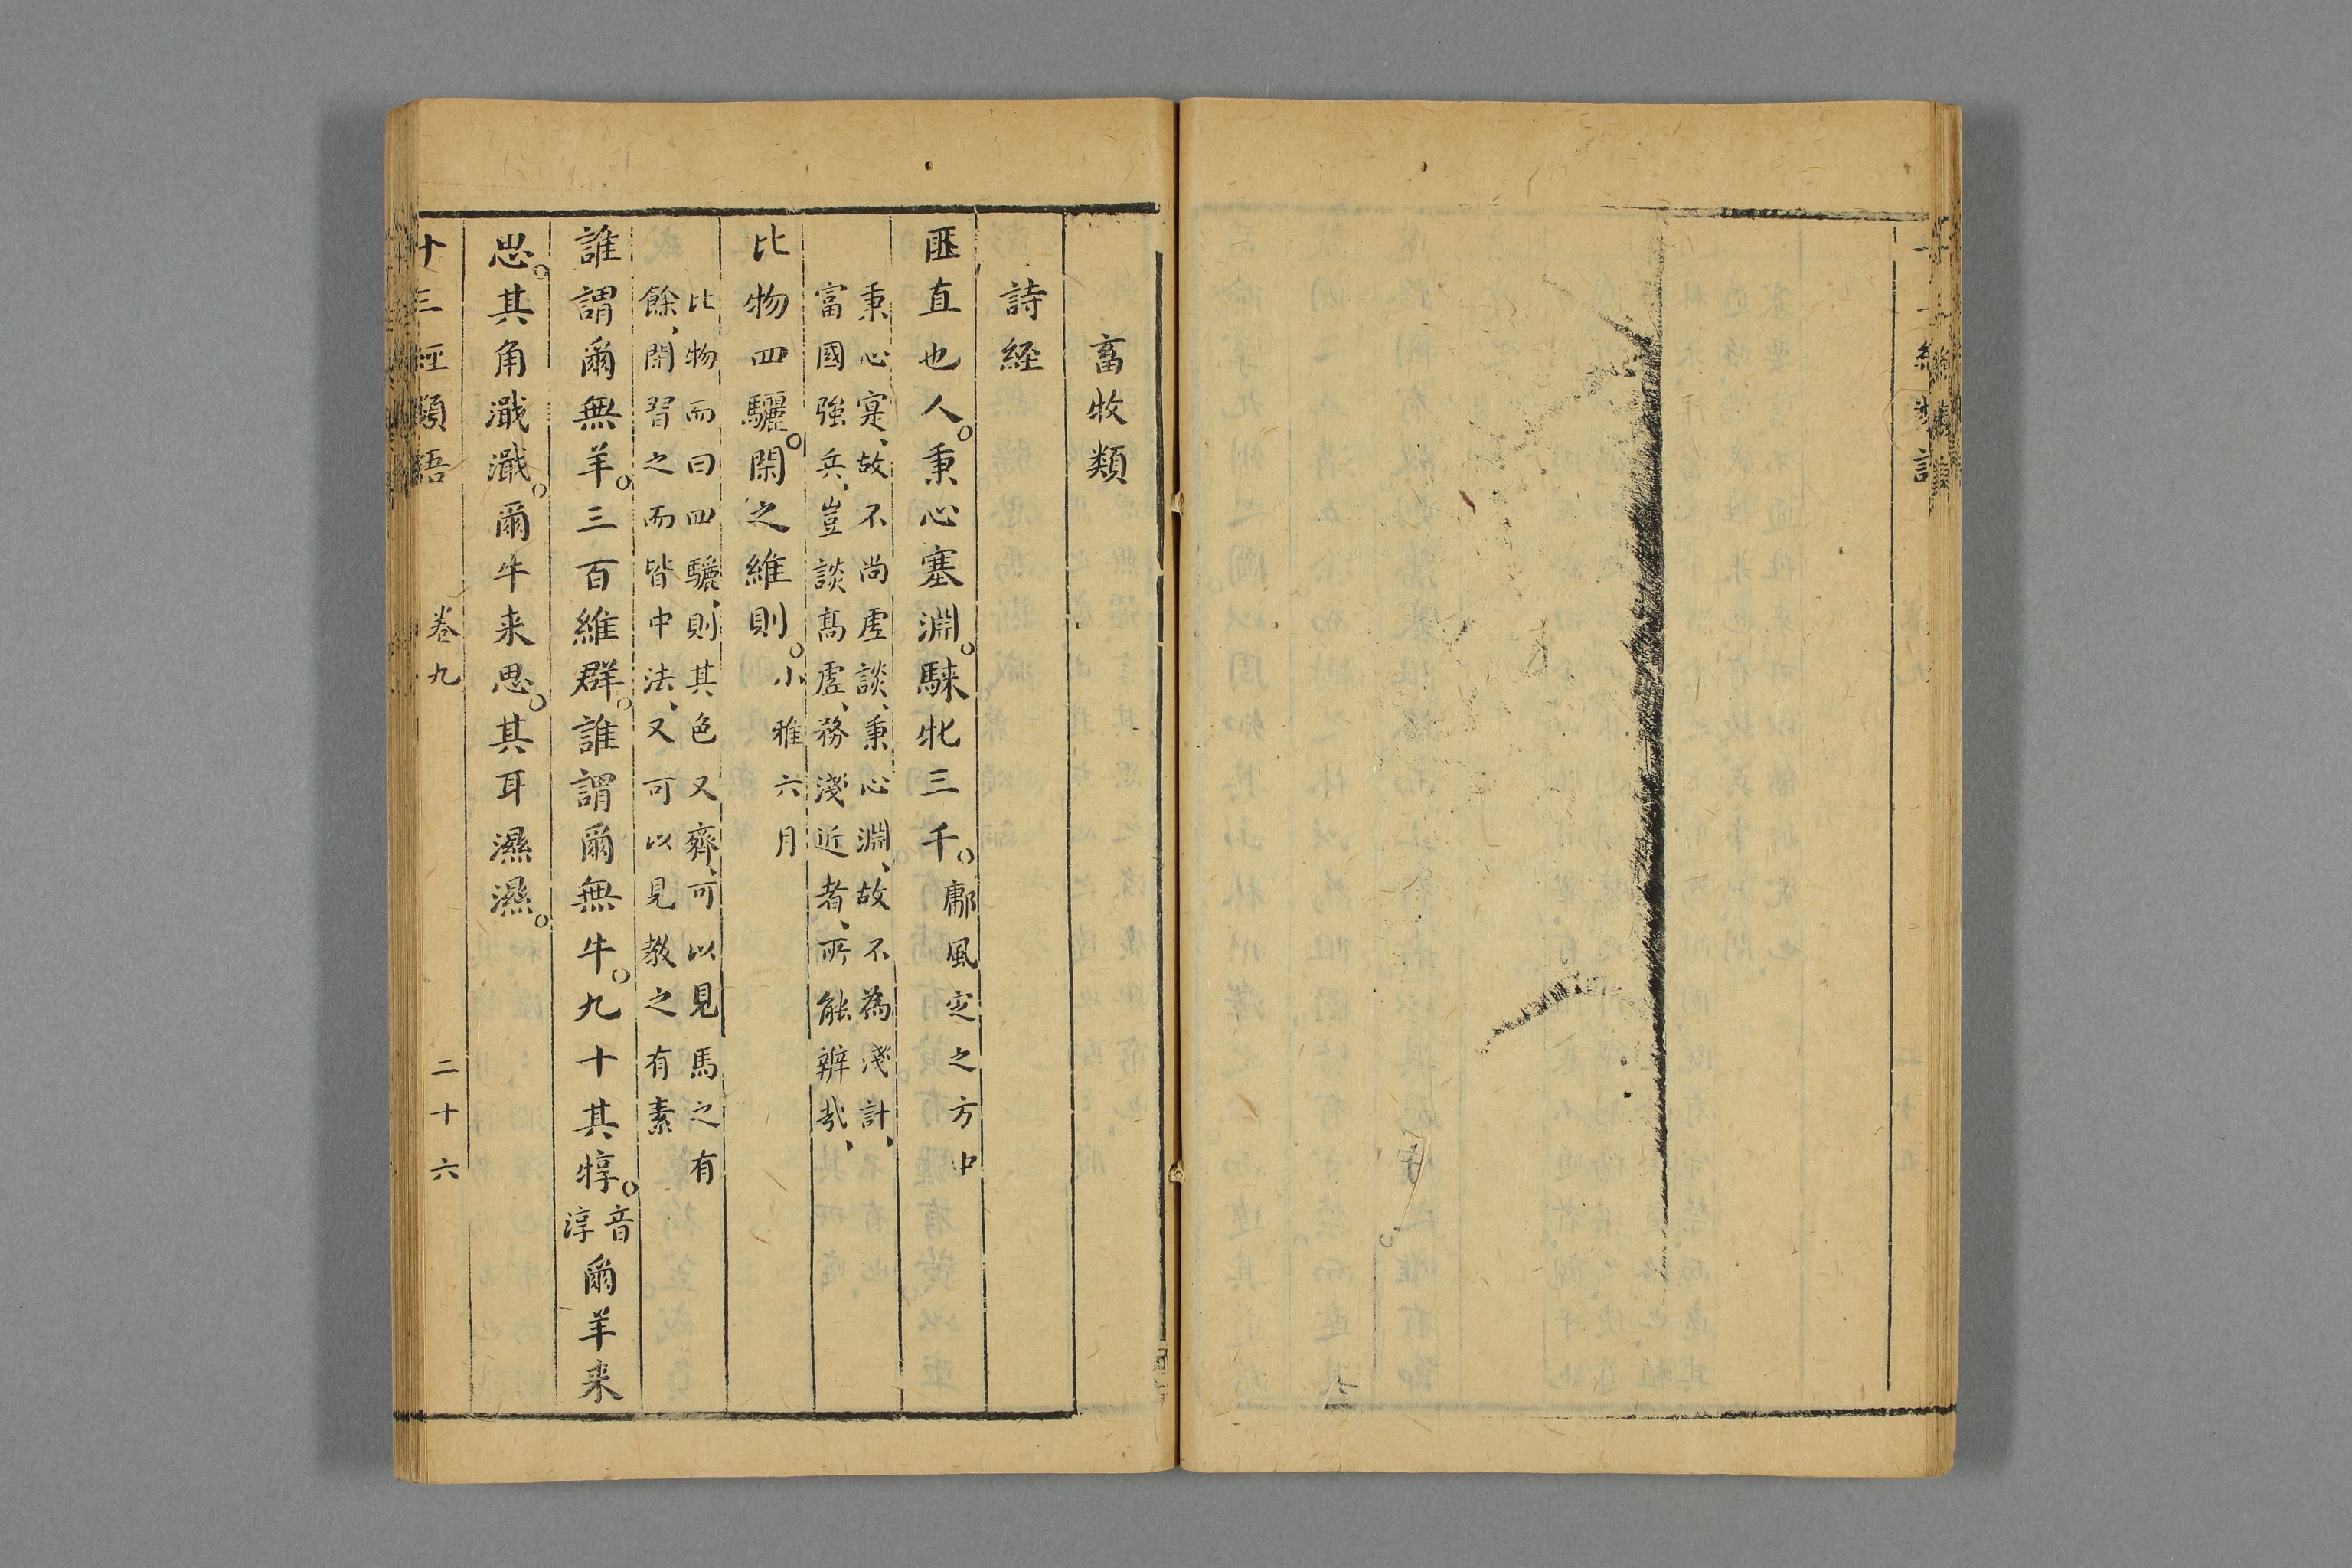 畜牧類
詩經
匪直也人。秉心塞淵。騋牝三千。鄘風定之方中
秉心寔、故不尚虛談、秉心淵、故不為淺計、
富國強兵、豈談高虛、務淺近者、所能辦哉、
比物四驪。閑之維則。小雅六月
比物而曰四驪、則其色又齊、可以見馬之有
餘、閑習之而皆中法、又可以見教之有素
誰謂爾無羊。三百維群。誰謂爾無牛。九十其犉。音淳爾羊来
思。其角濈濈。爾牛来思。其耳濕濕。
十三經類語 卷九 二十六